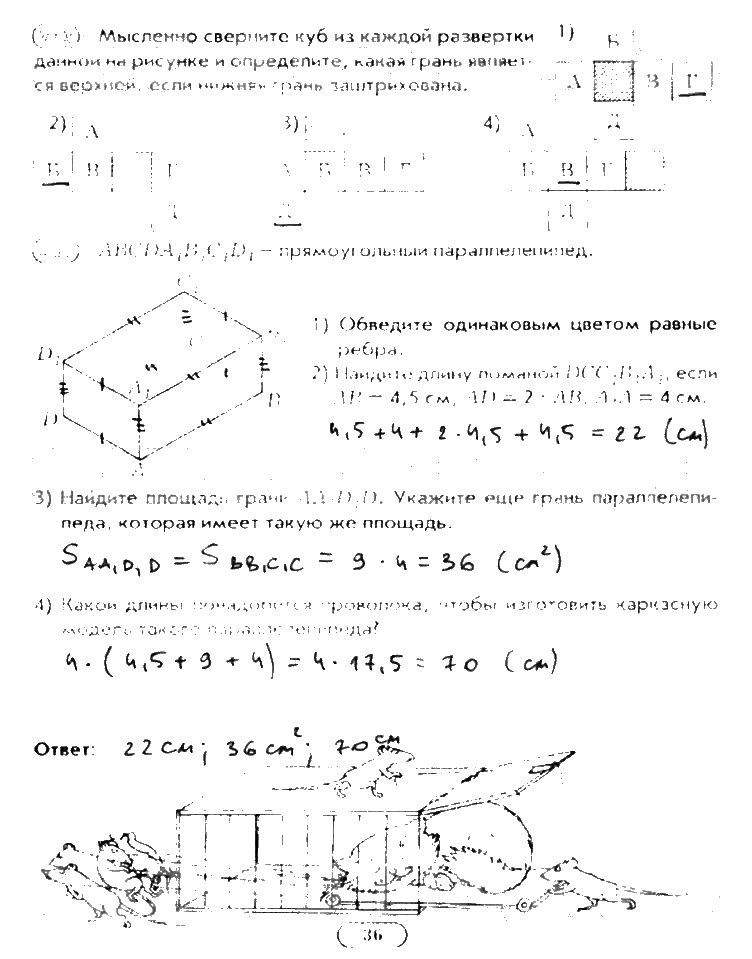 Мысленно сверните куб из каждой развертки
данной на рисунке и определите, какая грань являет-
ся верхней, если нижняя грань заштрихована.
1)
Б
А В Г
2) А
Б В Г
Д
3)
А Б В Г
Д
4) А Д
Б В Г
Д
ABCDA₁B₁C₁D₁ – прямоугольный параллелепипед.
C₁
D₁ A₁ C
D B
A
1) Обведите одинаковым цветом равные
ребра.
2) Найдите длину ломаной DCC₁B₁A₁, если
AB = 4,5 см, AD = 2 · AB, A₁A = 4 см.
4,5 + 4 + 2 · 4,5 + 4,5 = 22 (см)
3) Найдите площадь грани AA₁D₁D. Укажите еще грань параллелепи-
педа, которая имеет такую же площадь.
S AA₁D₁D = S BB₁C₁C = 9 · 4 = 36 (см²)
4) Какой длины понадобится проволока, чтобы изготовить каркасную
модель такого параллелепипеда?
4 · (4,5 + 9 + 4) = 4 · 17,5 = 70 (см)
Ответ: 22 см; 36 см²; 70 см
36